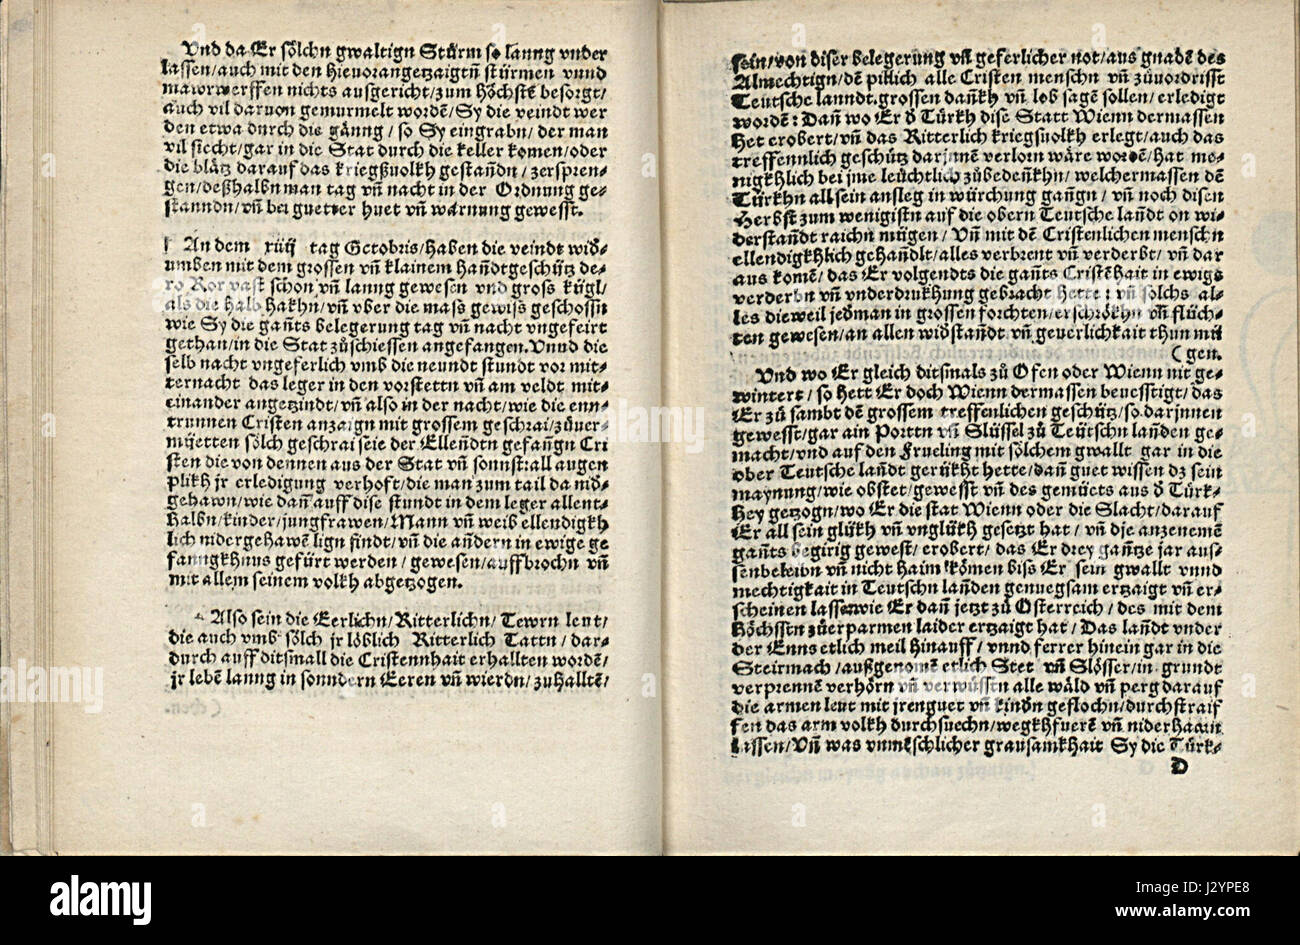 Vnd da Er sölchn gwaltign Stürm so lanng vnder
lassen/auch mit den hieuorangetzaigtñ stürmen vnnd
mawrwerffen nichts ausgericht/zum höchstē besorgt/
auch vil daruon gemurmelt wordē/Sy die veindt wer
den etwa durch die gänng/so Sy eingrabn/der man
vil siecht/gar in die Stat durch die keller komen/oder
die blätz darauf das kriegßuolkh gestañdn/zerspren-
gen/deßhalbn man tag vñ nacht in der Ordnung ge-
stanndn/vñ bei guetter huet vñ warnung gewesst.
An dem xiiij tag Octobris/haben die veindt widð-
umben mit dem grossen vñ klainem hañdtgeschütz de-
ro Ror vast schon vñ lanng gewesen vnd gross kügl/
als die halb hakhn/vñ vber die mass gewiss geschossñ
wie Sy die gañts belegerung tag vñ nacht vngefeirt
gethan/in die Stat zůschiessen angefangen. Vnnd die
selb nacht vngeferlich vmb die neundt stundt vor mit-
ternacht das leger in den vorstettn vñ am veldt mit-
einander angetzindt/vñ also in der nacht/wie die enn-
trunnen Cristen anzaign mit grossem geschrai/zůuer-
můetten sölch geschrai seie der Ellenðtn gefanǧn Cri
sten die von dennen aus der Stat vñ sonnst: all augen
plikh jr erledigung verhoft/die man zum tail da nið-
gehawn/wie dañ auff dise stundt in dem leger allent-
halbn/kinder/jungfrawen/Mann vñ weib ellendigkh
lich nidergehawē lign findt/vñ die añdern in ewige ge
fanngkhnus gefürt werden/gewesen/auffbrochn vñ
mit allem seinem volkh abgetzogen.
Also sein die Eerlichn/Ritterlichn/Tewrn leut/
die auch vmb sölch jr löblich Ritterlich Tattn/dar-
durch auff ditsmall die Cristennhait erhallten wordē/
jr lebē lanng in sonndern Eeren vñ wierdn/zuhalltē/
sein/von diser belegerung vñ geferlicher not/aus gnadē des
Almechtign/dē pillich alle Cristen menschn vñ zůuordrisst
Teutsche lanndt grossen dañkh vñ lob sagē sollen/erledigt
wordē: Dañ wo Er ð Türkh dise Statt Wienn dermassen
het erobert/vñ das Ritterlich kriegßuolkh erlegt/auch das
treffennlich geschütz darjnnē verlorn wäre wordē/hat me-
nigkhlich bei jme leüchtlich zůbedeñkhn/welchermassen dē
Türkhn all sein ansleg in würchung gañgn/vñ noch disen
Herbst zum wenigistn auf die obern Teutsche lañdt on wi-
derstañdt raichn mügen/Vñ mit dē Cristenlichen menschn
ellendigkhlich gehañdlt/alles verbrent vñ verderbt/vñ dar
aus komē/das Er volgendts die gañts Cristēhait in ewigs
verderbn vñ vnderdrukhung gebracht hette: vñ solchs al-
les dieweil jeðman in grossen forchten/erschrökhn vñ flüch-
ten gewesen/an allen wiðstañdt vñ geuerlichkait thun mü
(gen.
Vnd wo Er gleich ditsmals zů Ofen oder Wienn nit ge-
wintert/so hett Er doch Wienn dermassen beuesstigt/das
Er zů sambt dē grossem treffenlichen geschütz/so darjnnen
gewesst/gar ain Porttn vñ Slüssel zů Teütschn lañden ge-
macht/vnd auf den Frueling mit sölchem gwallt gar in die
ober Teutsche lañdt gerükht hette/dañ guet wissen dz sein
maynung/wie obstet/gewesst vñ des gemüets aus ð Türk-
hey getzogn/wo Er die stat Wienn oder die Slacht/darauf
Er all sein glükh vñ vnglükh gesetzt hat/vñ die anzenemē
gañts begirig gewest/erobert/das Er drey gañtze jar aus-
senbeleibn vñ nicht haim kömen biss Er sein gwallt vnnd
mechtigkait in Teutschn lañden genuegsam ertzaigt vñ er-
scheinen lassen wie Er dañ jetzt zů Osterreich/des mit dem
höchsstn zůerparmen laider ertzaigt hat/Das lañdt vnder
der Enns etlich meil hinauff/vnnd ferrer hinein gar in die
Steirmach/außgenomē etlich Stet vñ Slösser/in grundt
verprennē verhörn vñ verwüssen alle wäld vñ perg darauf
die armen leut mit jrem guet vñ kindn geflochn/durchstraif
fen das arm volkh durchsuechn/wegkhfuerē vñ niderhawn
lassen/Vñ was vnmēschlicher grausamkhait Sy die Türk-
D